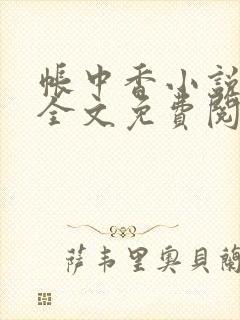 帳中香小説
全文免費閱
萨韦里奥貝蘭